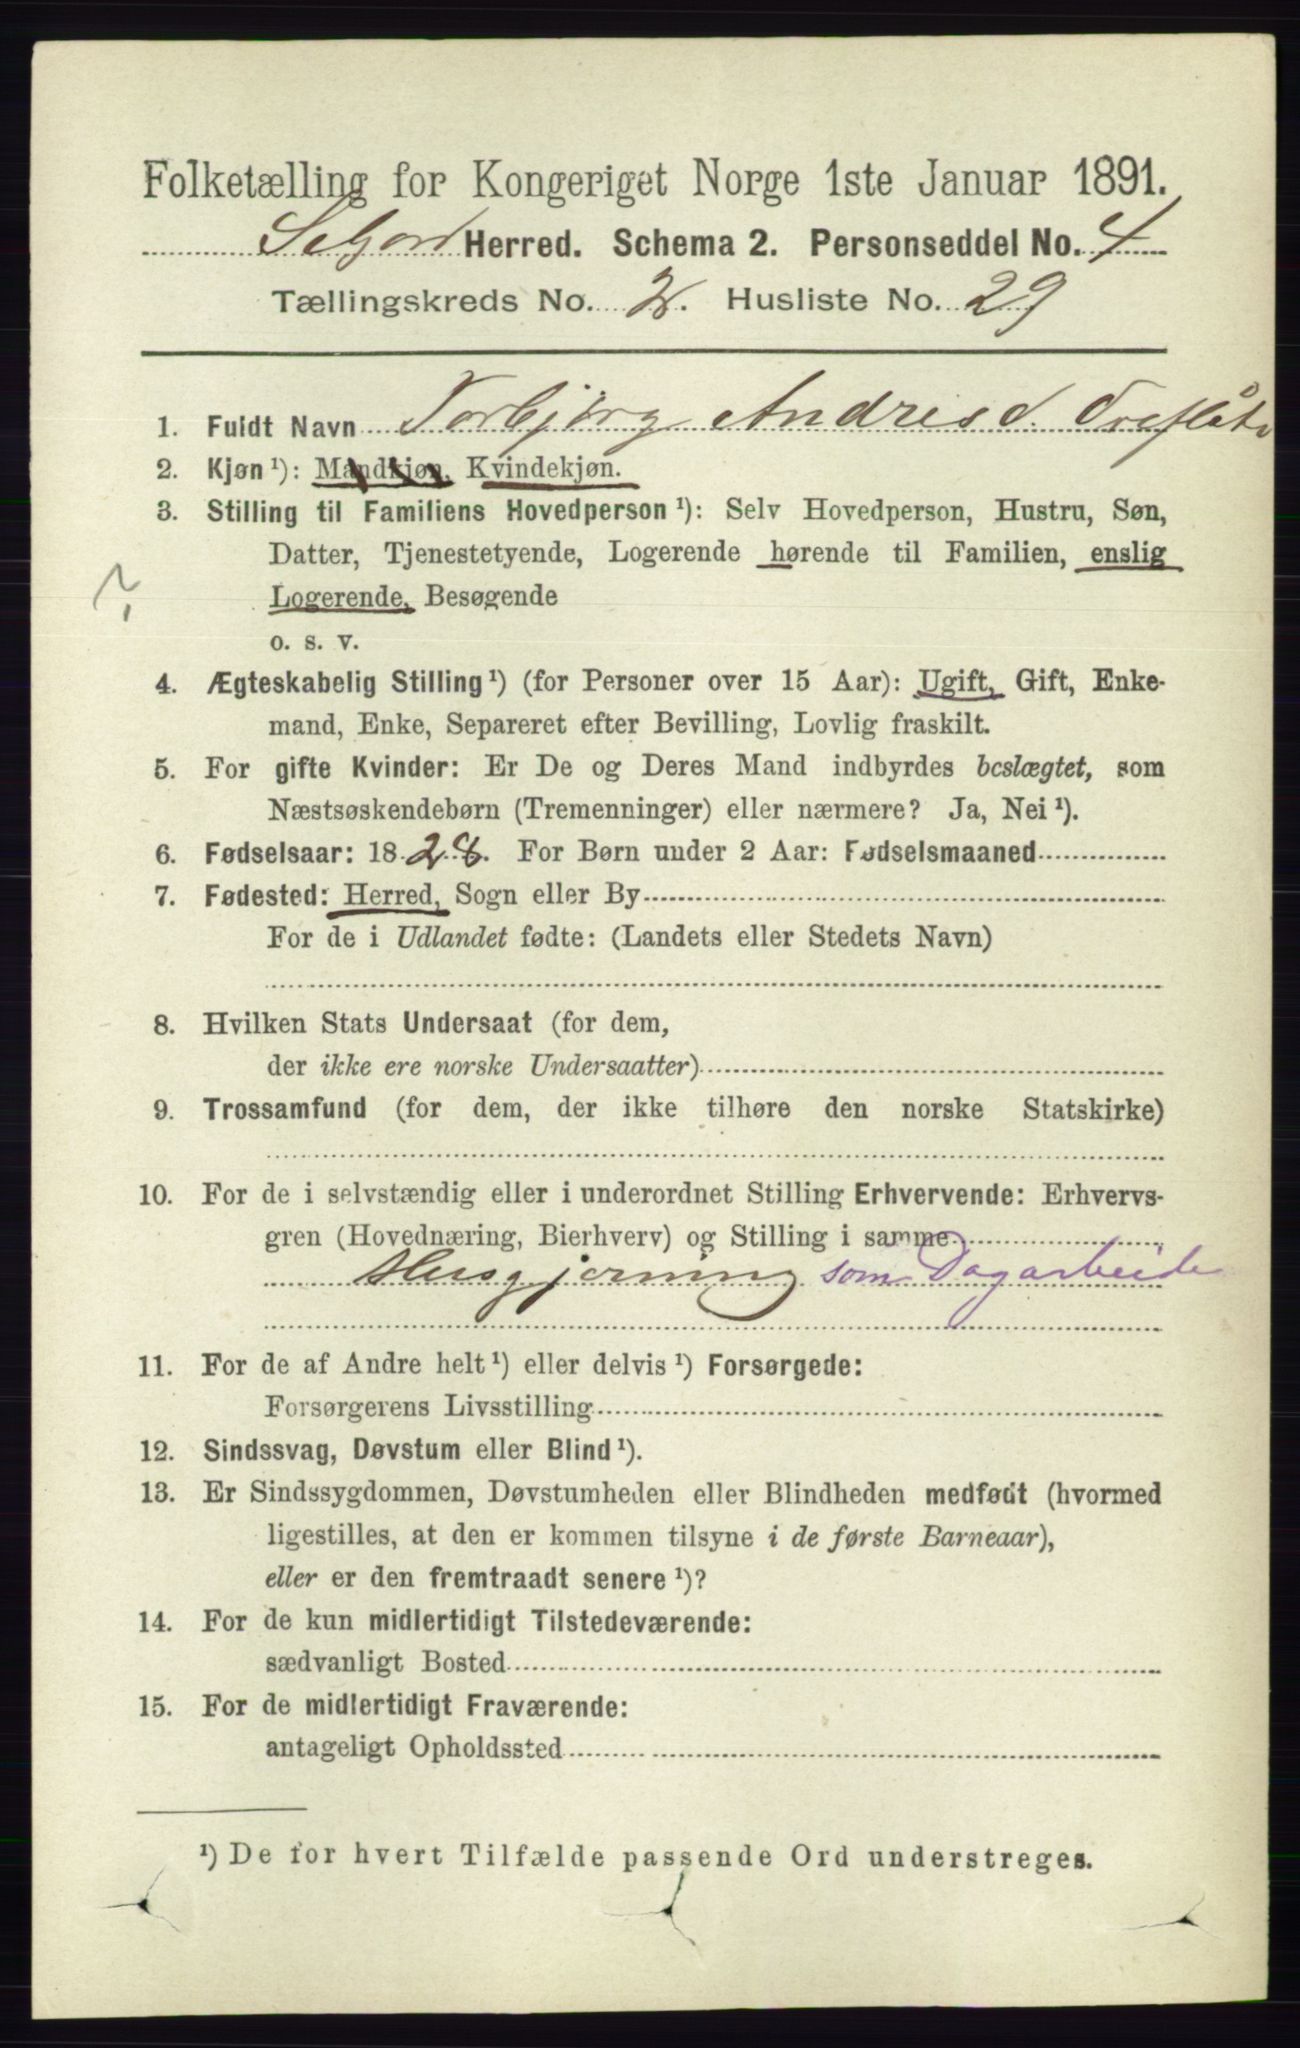 Folketælling for Kongeriget Norge 1ste Januar 1891.
Seljord Herred. Schema 2. Personseddel No. 4
Tællingskreds No. 2. Husliste No. 29
1. Fuldt Navn Torbjörg Andres d.
2. Kjøn ¹): Mandkjøn, Kvindekjøn.
3. Stilling til Familiens Hovedperson ¹): Selv Hovedperson, Hustru, Søn,
Datter, Tjenestetyende, Logerende hørende til Familien, enslig
Logerende, Besøgende
o. s. v.
4. Ægteskabelig Stilling ¹) (for Personer over 15 Aar): Ugift, Gift, Enke-
mand, Enke, Separeret efter Bevilling, Lovlig fraskilt.
5. For gifte Kvinder: Er De og Deres Mand indbyrdes beslægtet, som
Næstsøskendebørn (Tremenninger) eller nærmere? Ja, Nei ¹).
6. Fødselsaar: 1828. For Børn under 2 Aar: Fødselsmaaned
7. Fødested: Herred, Sogn eller By
For de i Udlandet fødte: (Landets eller Stedets Navn)
8. Hvilken Stats Undersaat (for dem,
der ikke ere norske Undersaatter)
9. Trossamfund (for dem, der ikke tilhøre den norske Statskirke)
10. For de i selvstændig eller i underordnet Stilling Erhvervende: Erhvervs-
gren (Hovednæring, Bierhverv) og Stilling i samme
Husgjerning som Dagarbeide
11. For de af Andre helt ¹) eller delvis ¹) Forsørgede:
Forsørgerens Livsstilling
12. Sindssvag, Døvstum eller Blind ¹).
13. Er Sindssygdommen, Døvstumheden eller Blindheden medfødt (hvormed
ligestilles, at den er kommen tilsyne i de første Barneaar),
eller er den fremtraadt senere ¹)?
14. For de kun midlertidigt Tilstedeværende:
sædvanligt Bosted
15. For de midlertidigt Fraværende:
antageligt Opholdssted
¹) De for hvert Tilfælde passende Ord understreges.